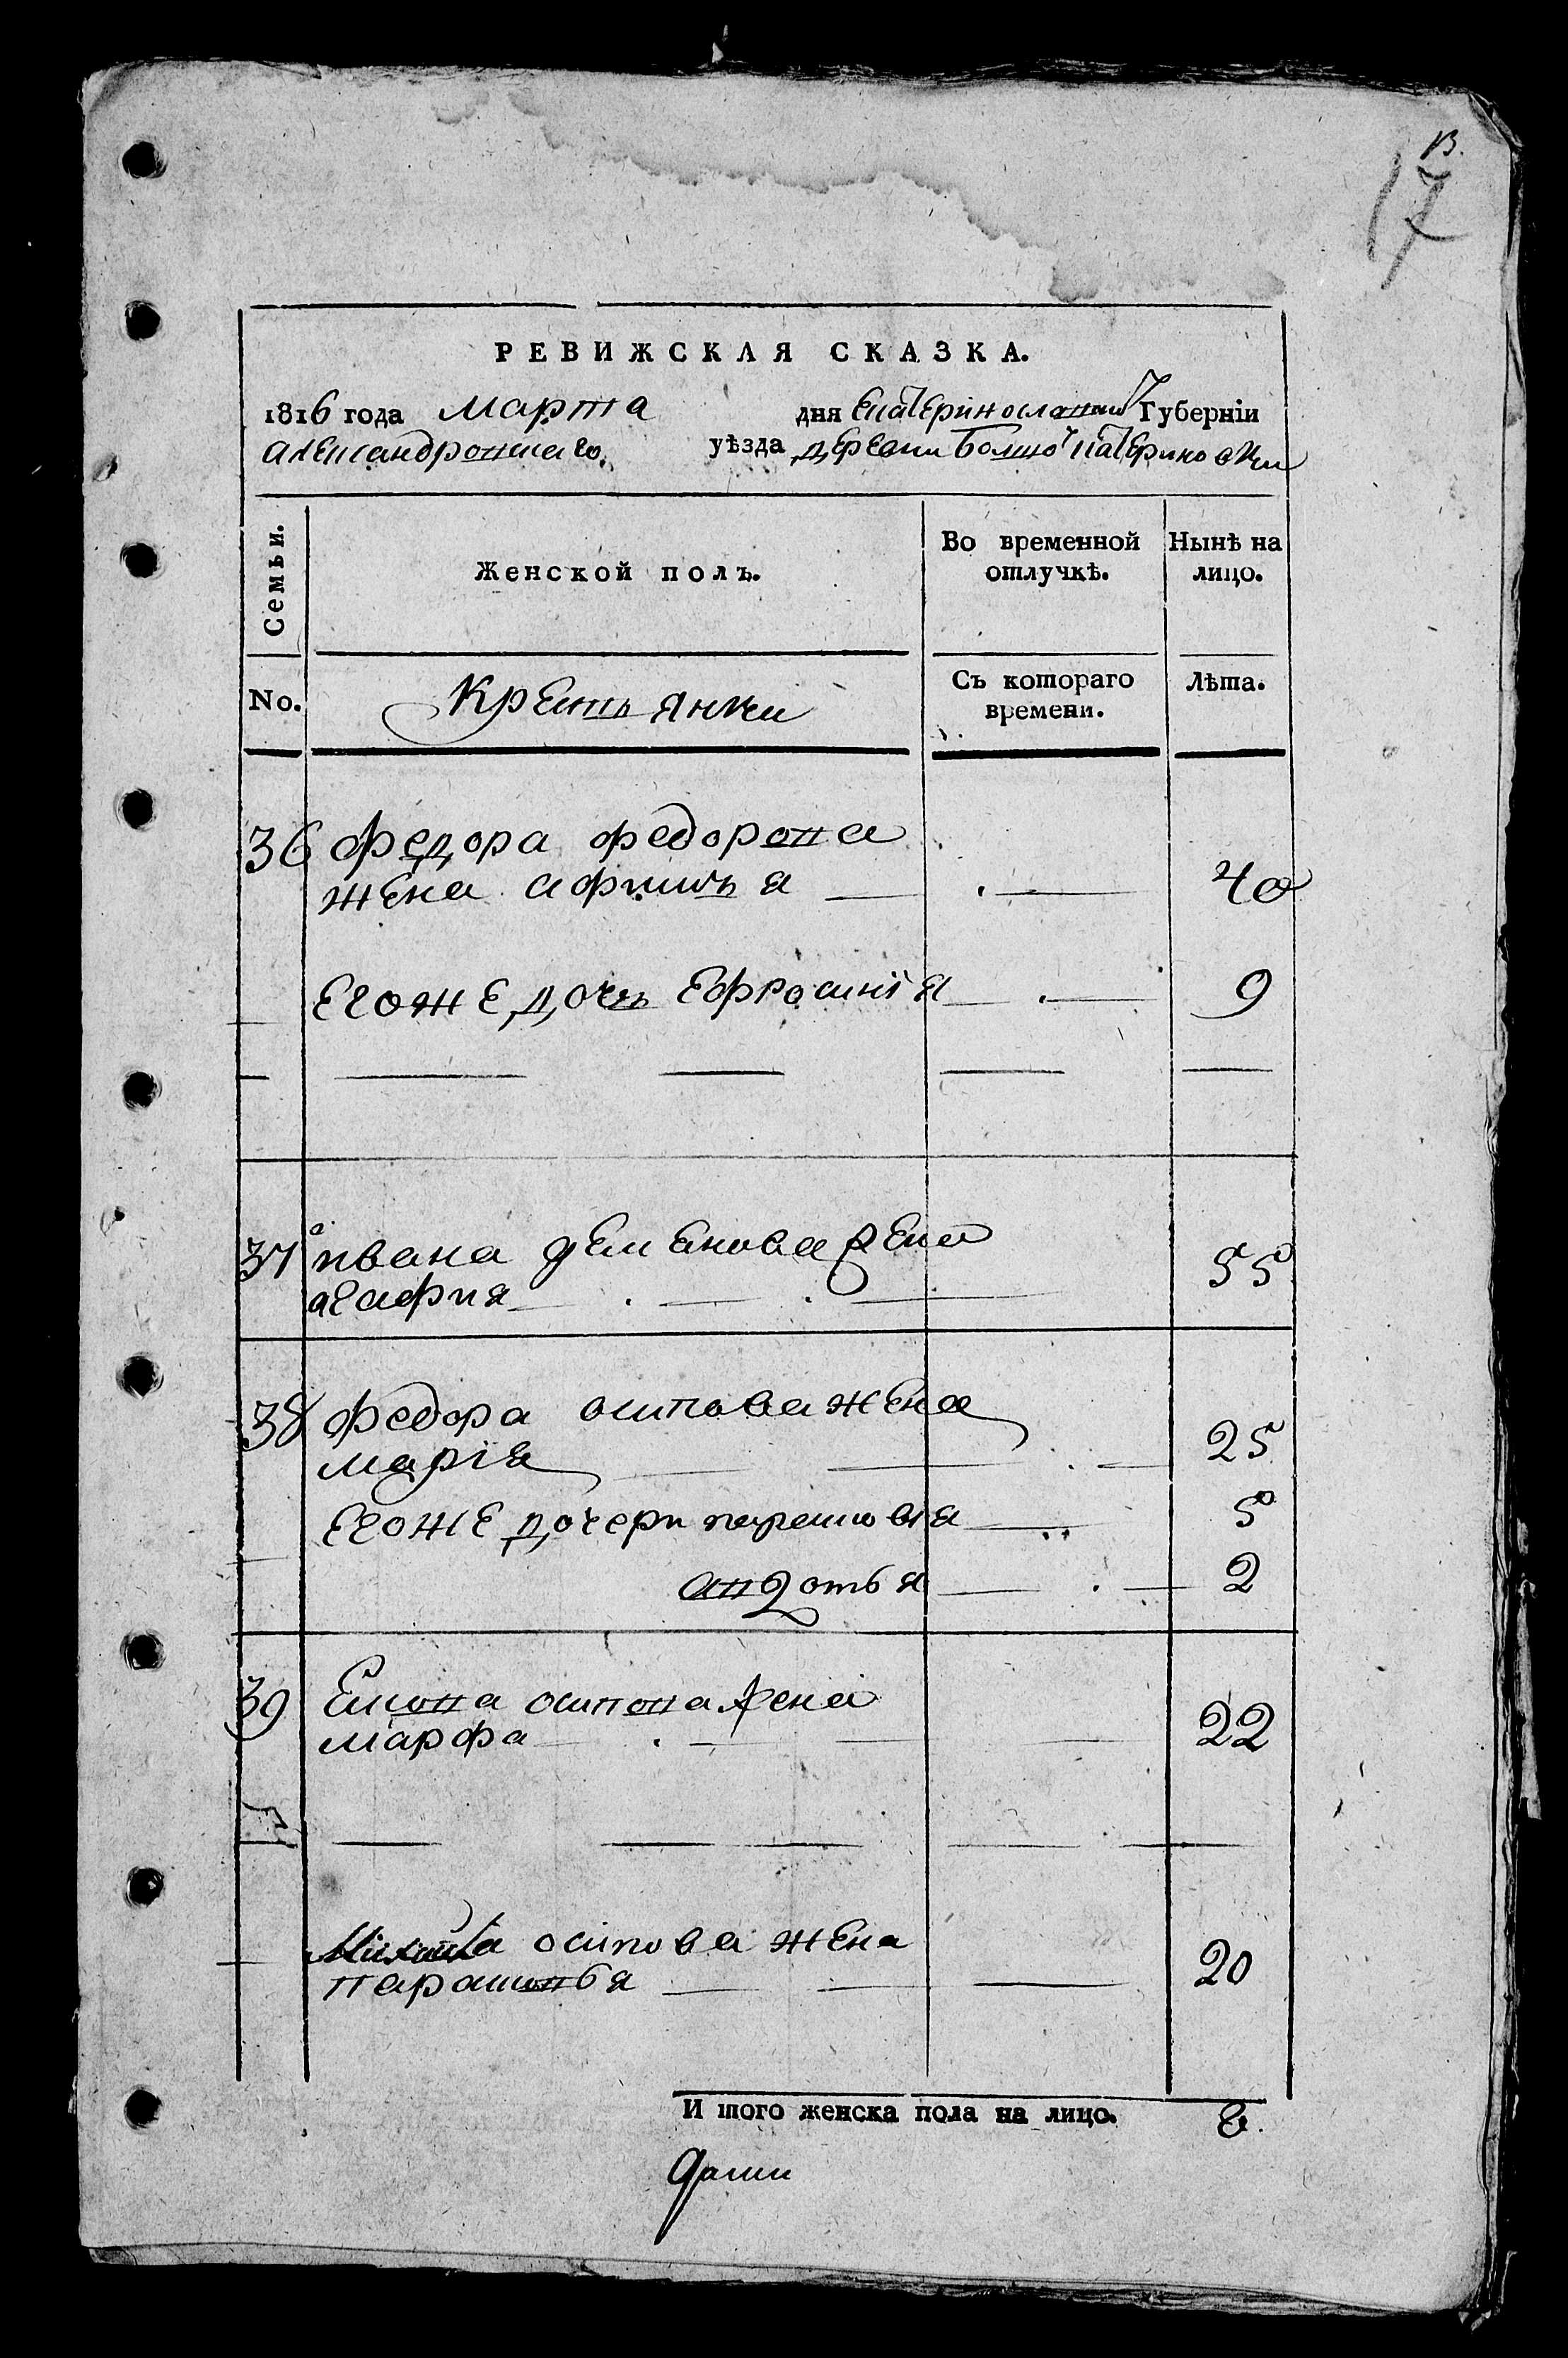 13.
17
РЕВИЖСКАЯ СКАЗКА.
1816 года Марта дня Екатеринославской Губерніи
александровскаго уѣзда деревни Болшо Катериновки
Семьи.
Женской полъ.
Во временной отлучкѣ.
Нынѣ на лицо.
No.
Крестьянки
Съ котораго времени.
Лѣта.
36 федора федорова
жена афимья 40
егоже дочь Ефросинія 9
37 ивана деменова жена
агафия 55
38 федора осипова жена
марія 25
егоже дочери парасковія 5
авдотья 2
39 осипова жена
марфа 22
Михаила осипова жена
парасковья 20
И того женска пола на лицо. 8.